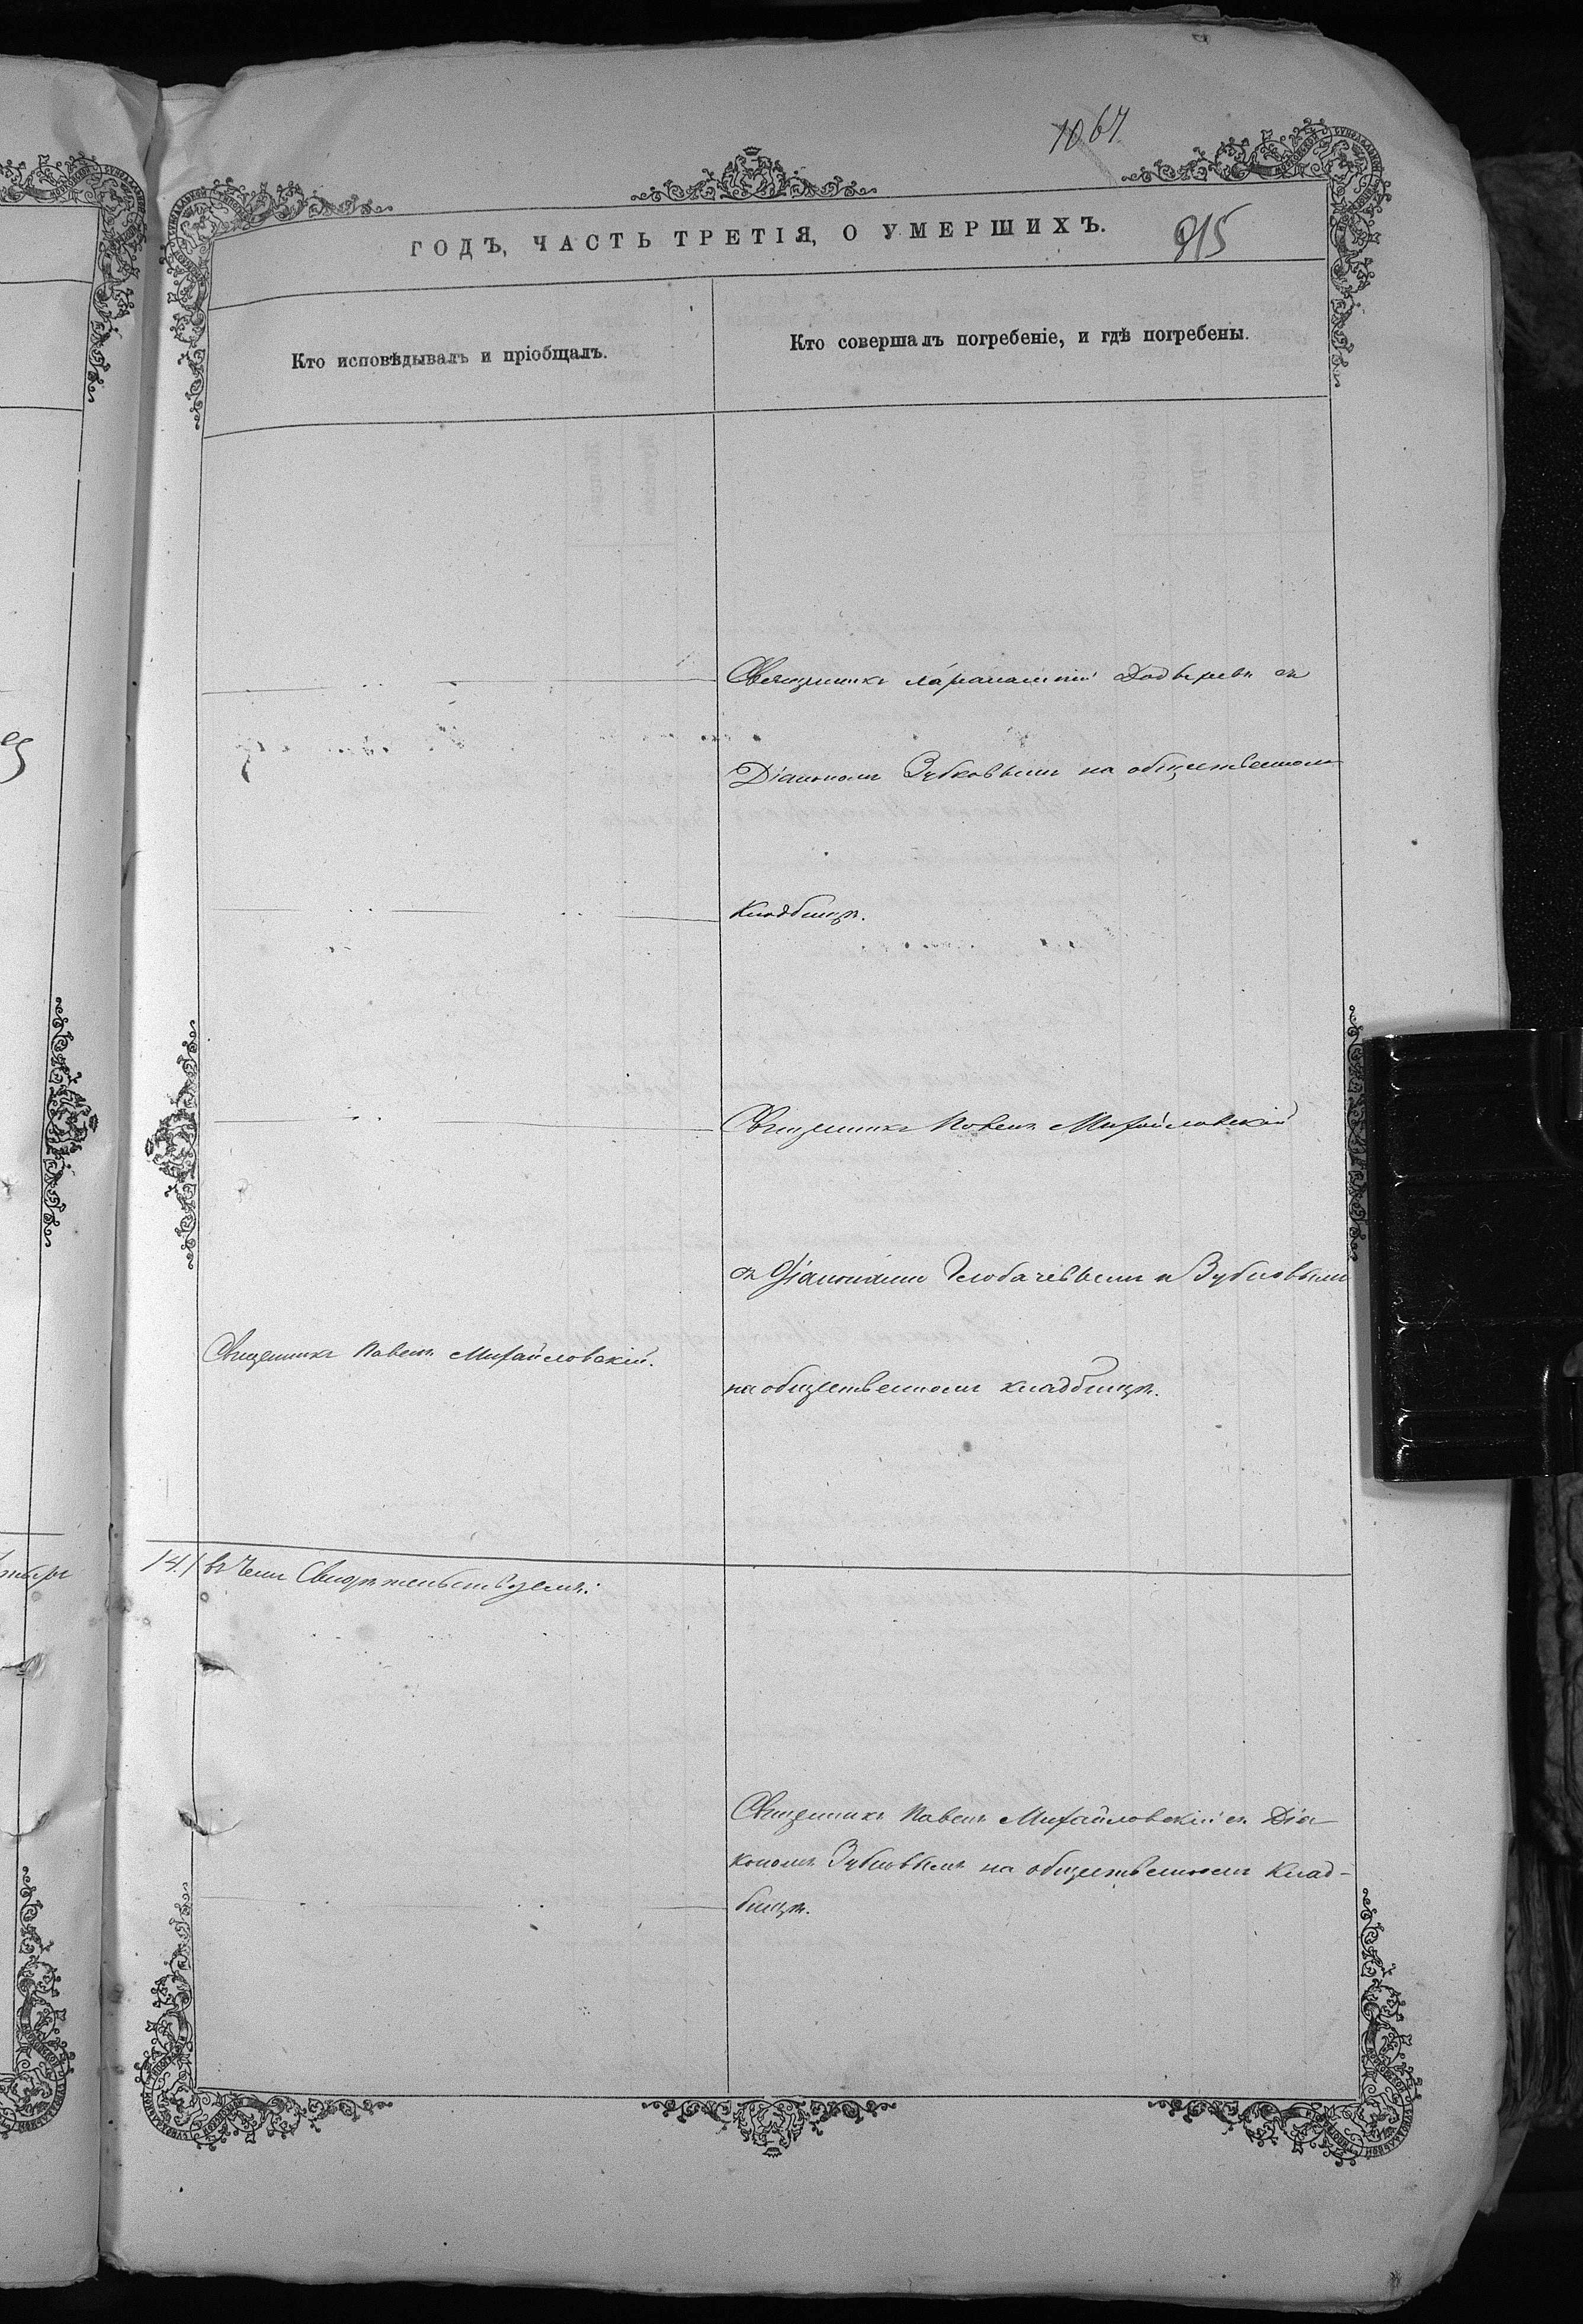 1064
ГОДЪ, ЧАСТЬ ТРЕТІЯ, О УМЕРШИХЪ.
815
Кто исповѣдывалъ и пріобщалъ.
Кто совершалъ погребеніе, и гдѣ погребены.
Священникъ съ
Діакономъ Зубковымъ на общественномъ
Кладбищѣ.
Священникъ Павелъ Михайловскій
съ Діаконами Глобачевымъ и Зубковымъ
на общественномъ кладбищѣ.
Священникъ Павелъ Михайловскій.
въ чемъ Свидѣтельствуемъ:
Священникъ Павелъ Михайловскій съ Діа-
кономъ Зубковымъ на общественномъ Клад-
бищѣ.